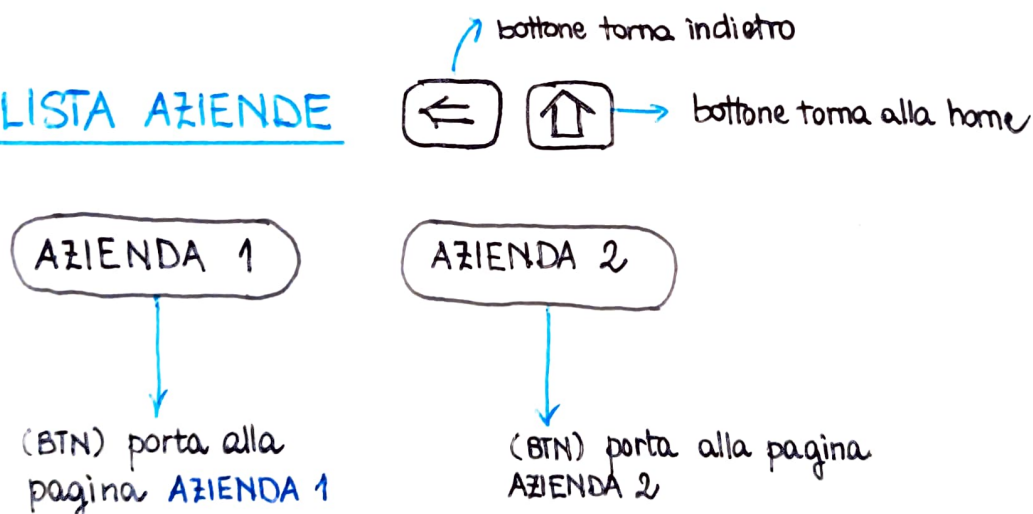 bottone torna indietro
LISTA AZIENDE
bottone torna alla home
AZIENDA 1
AZIENDA 2
(BTN) porta alla
pagina AZIENDA 1
(BTN) porta alla pagina
AZIENDA 2